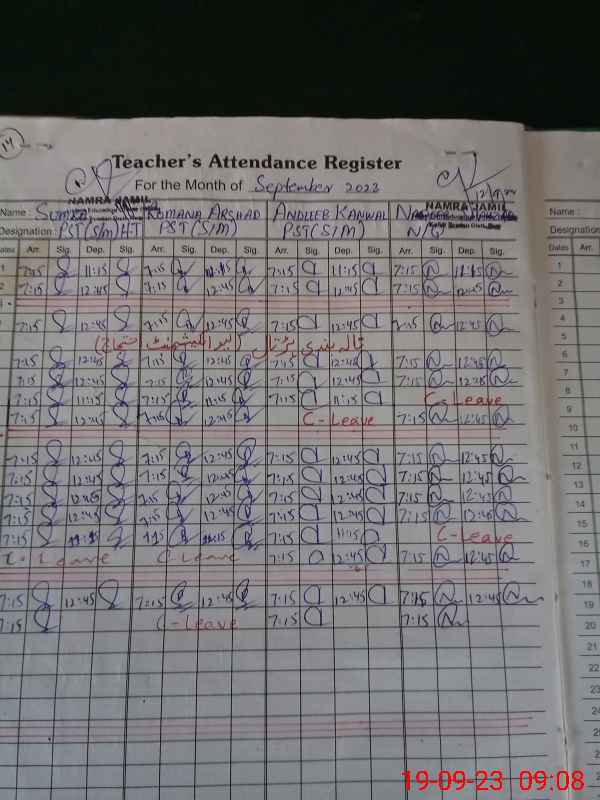 14
Teacher's Attendance Register
For the Month of September 2023
NAMRA JAMIL
NAMRA JAMIL
Name: ROMANA ARSHAD ANDLEEB KANWAL
Designation: PST(S/M)HT PST(S/M) PST(S/M)
Dates Arr. Sig. Dep. Sig. Arr. Sig. Dep. Sig. Arr. Sig. Dep. Sig. Arr. Sig. Dep. Sig.
1 7:15 11:15 7:15 11:15 7:15 11:15 7:15 11:15
2 7:15 12:45 7:15 12:45 7:15 12:45 7:15 12:45
7:15 12:45 7:15 12:45 7:15 12:45 7:15 12:45
تالہ بندی ہڑتال
7:15 12:45 7:15 12:45 7:15 12:45 7:15 12:45
7:15 12:45 7:15 12:45 7:15 12:45 7:15 12:45
7:15 11:15 7:15 11:15 7:15 11:15 C-Leave
7:15 12:45 7:15 12:45 C-Leave 7:15 12:45
7:15 12:45 7:15 12:45 7:15 12:45 7:15 12:45
7:15 12:45 7:15 12:45 7:15 12:45 7:15 12:45
7:15 12:45 7:15 12:45 7:15 12:45 7:15 12:45
7:15 12:45 7:15 12:45 7:15 12:45 7:15 12:45
7:15 11:15 7:15 11:15 7:15 11:15 C-Leave
C-Leave C-Leave 7:15 12:45 7:15 12:45
7:15 12:45 7:15 12:45 7:15 12:45 7:15 12:45
7:15 C-Leave 7:15 7:15
Name:
Designation
Dates Arr.
1
2
3
4
5
6
7
8
9
10
11
12
13
14
15
16
17
18
19
20
21
22
23
24
25
26
27
28
29
19-09-23 09:08